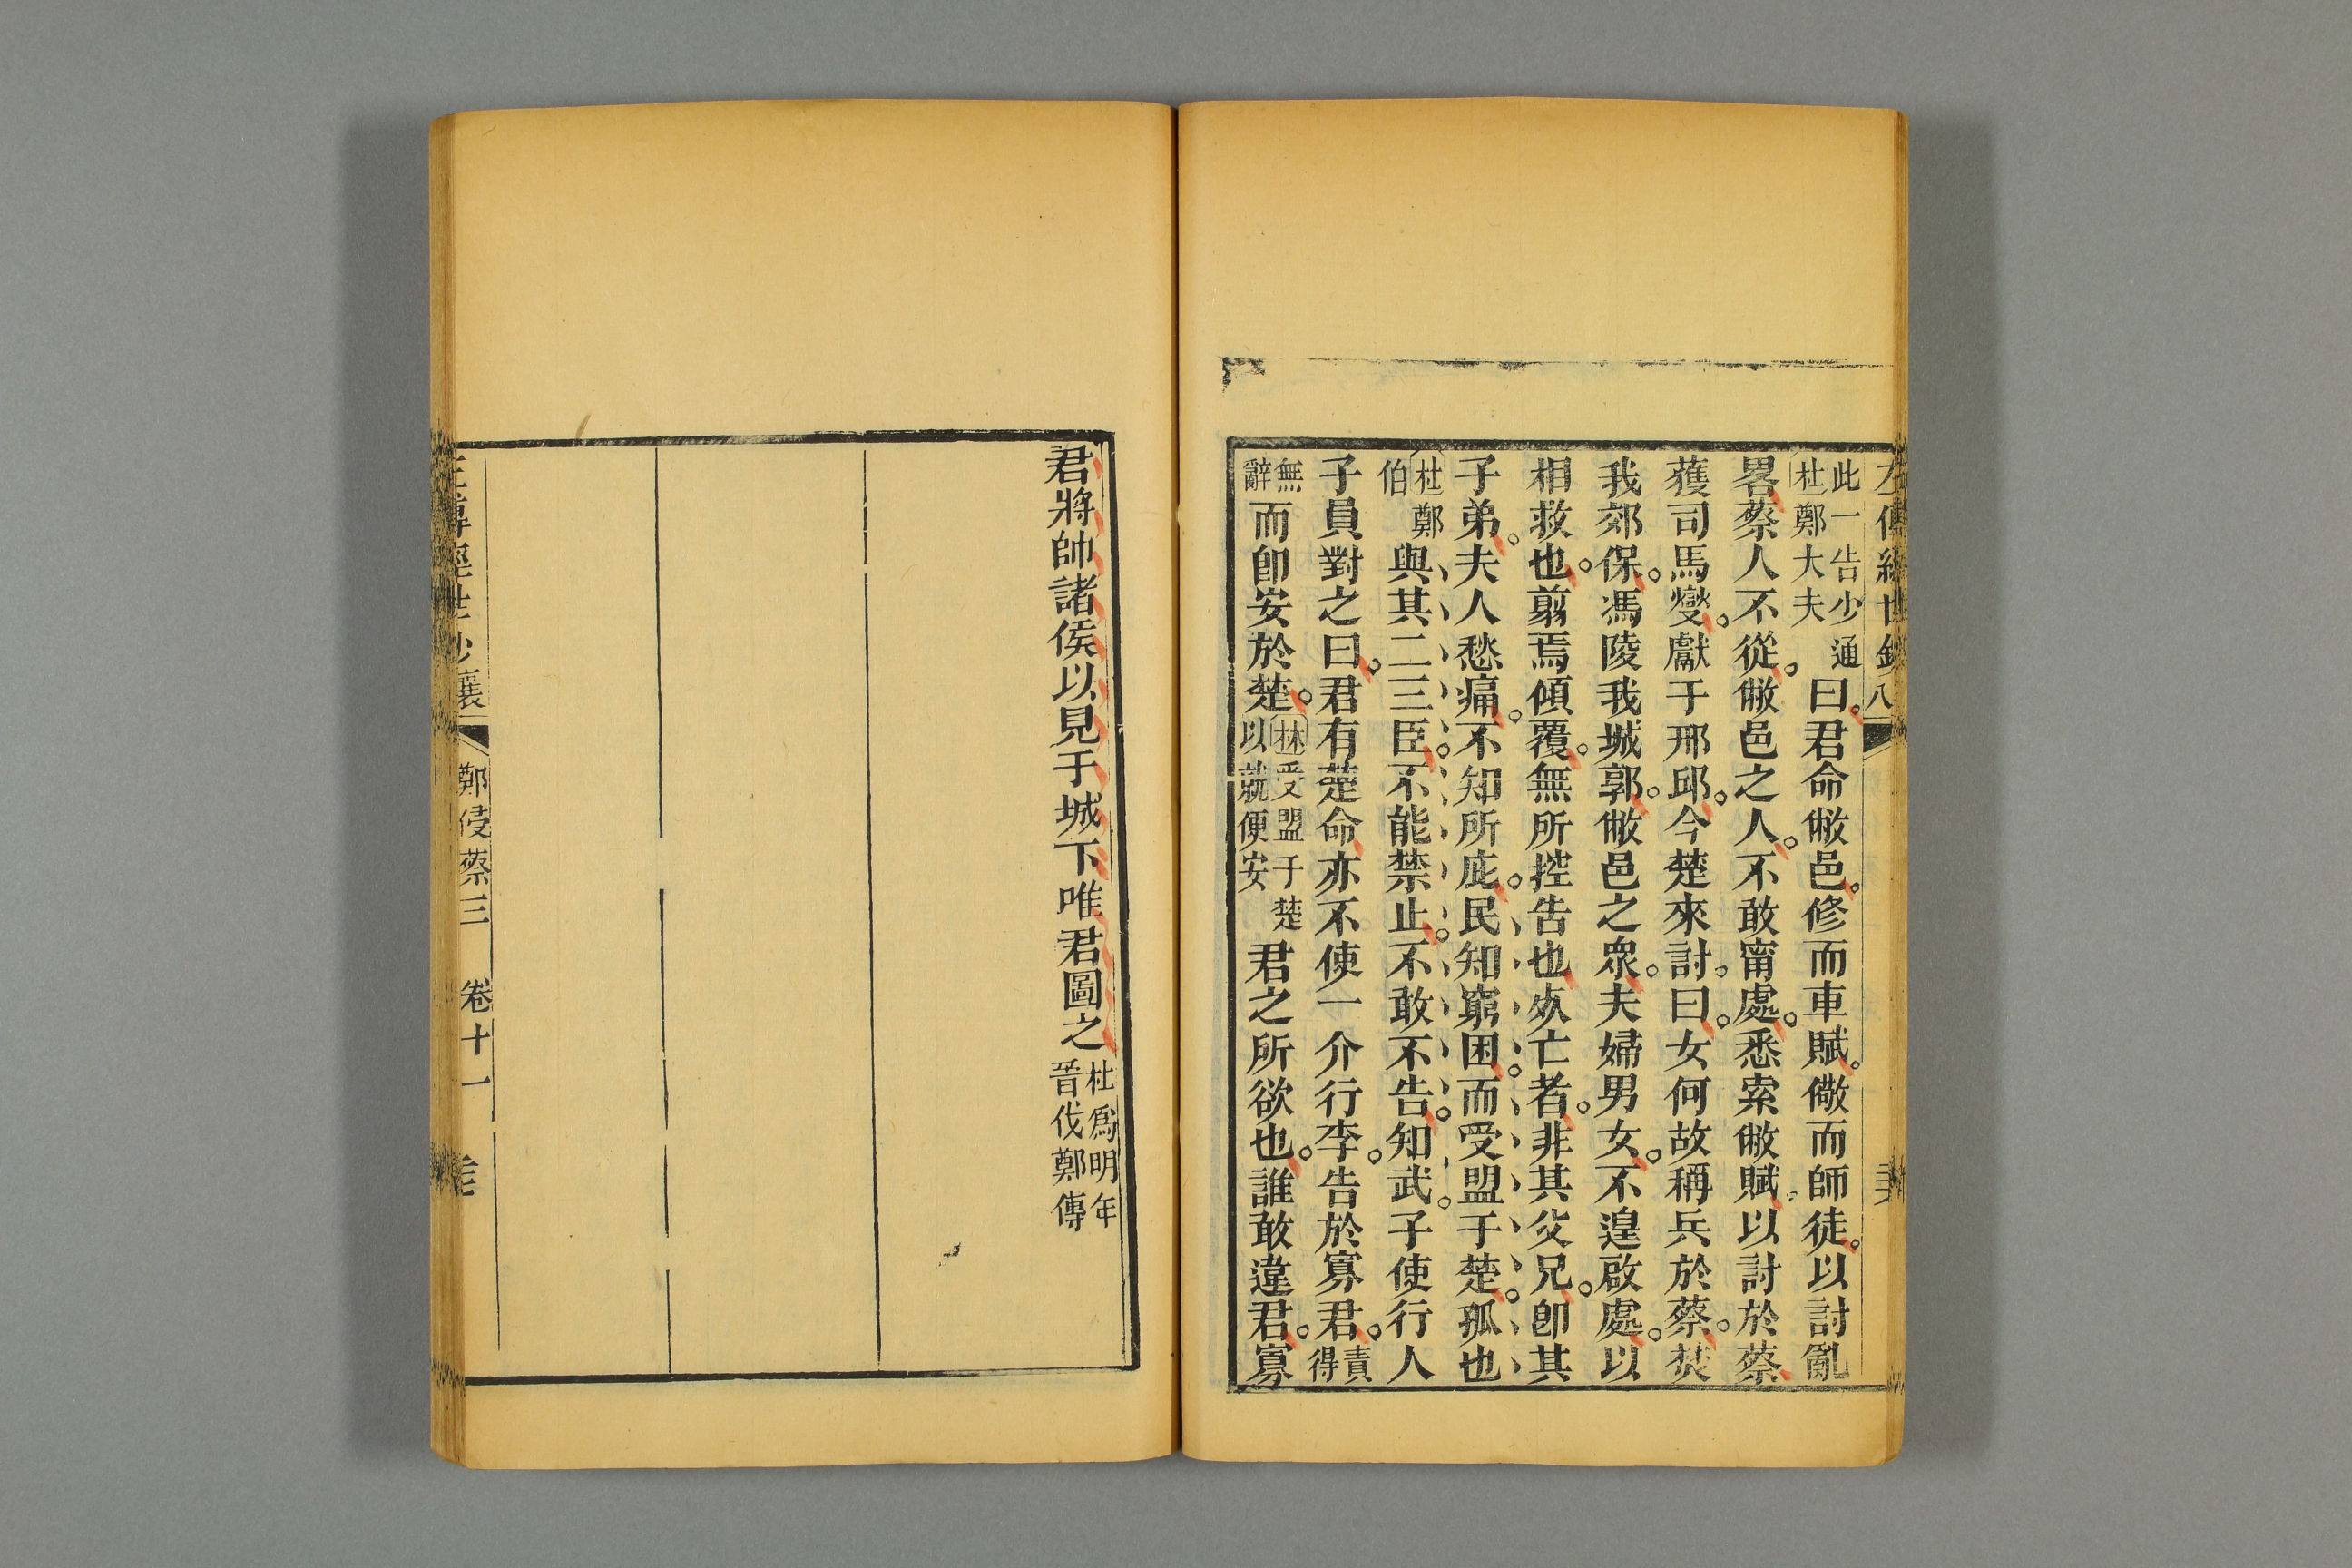 左傳經世鈔
八
此一告少通
杜鄭大夫
曰君命敝邑修而車賦儆而師徒以討亂
畧蔡人不從敝邑之人不敢甯處悉索敝賦以討於蔡
獲司馬燮獻于邢邱今楚來討曰女何故稱兵於蔡焚
我郊保馮陵我城郭敝邑之衆夫婦男女不遑啟處以
相救也翦焉傾覆無所控告也𣦸亡者非其父兄卽其
子弟夫人愁痛不知所庇民知窮困而受盟于楚孤也
杜鄭
伯
與其二三臣不能禁止不敢不告知武子使行人
子員對之曰君有楚命亦不使一介行李告於寡君
責
得
無
辭
而卽安於楚
林受盟于楚
以就便安
君之所欲也誰敢違君寡
君將帥諸侯以見于城下唯君圖之
杜爲明年
晉伐鄭傳
經世鈔
襄
鄭侵蔡三
卷十一